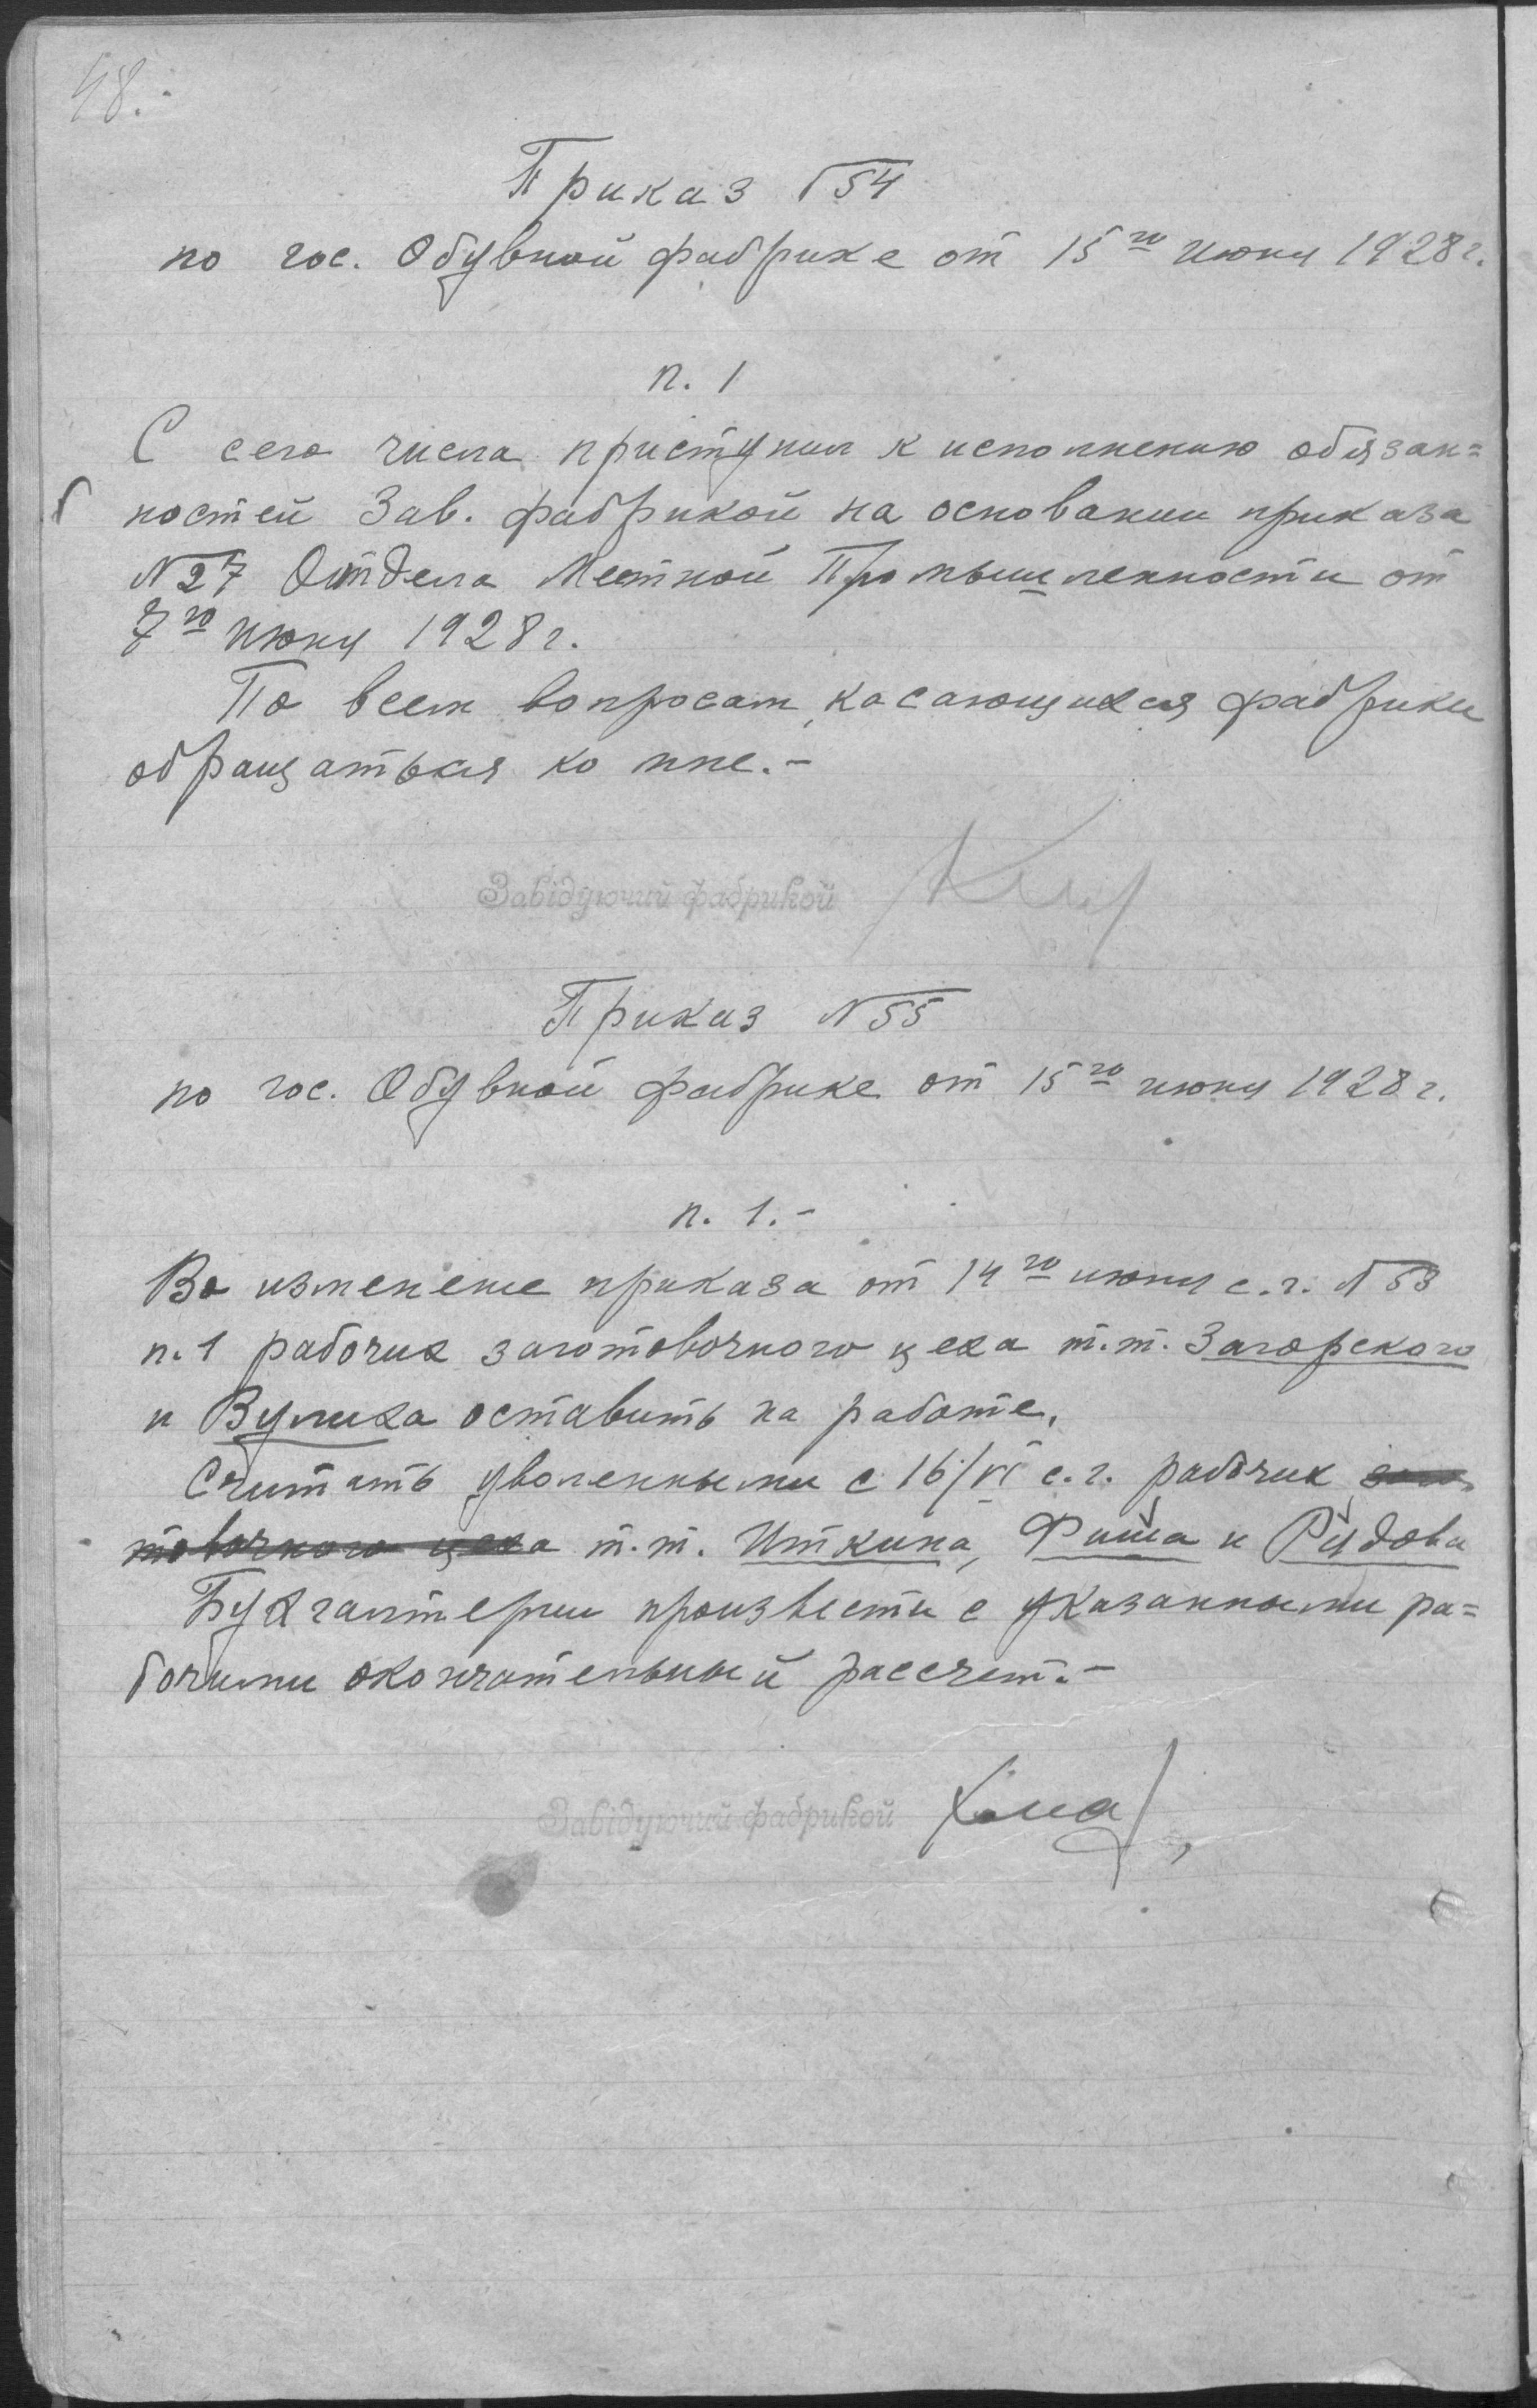 48.
Приказ № 54
по гос. Обувной фабрике от 15го июня 1928 г.
п. 1
С сего числа приступил к исполнению обязан=
ностей Зав. фабрикой на основании приказа
№ 27 Отдела Местной Промышленности от
7го июня 1928 г.
По всем вопросам, касающихся фабрики
обращаться ко мне.-
Завідуючий фабрикой
Приказ № 55
по гос. Обувной фабрике от 15го июня 1928 г.
п. 1.-
Во изменение приказа от 14го июня с.г. № 53
п. 1 рабочих заготовочного цеха т.т. Загорского
и Вулиха оставить на работе.
Считать уволенными с 16/VI с.г. рабочих заго
товочного цеха т.т. Иткина, Фиша и Рудова
Бухгалтерии произвести с указанными ра=
бочими окончательный рассчет.-
Завідуючий фабрикой